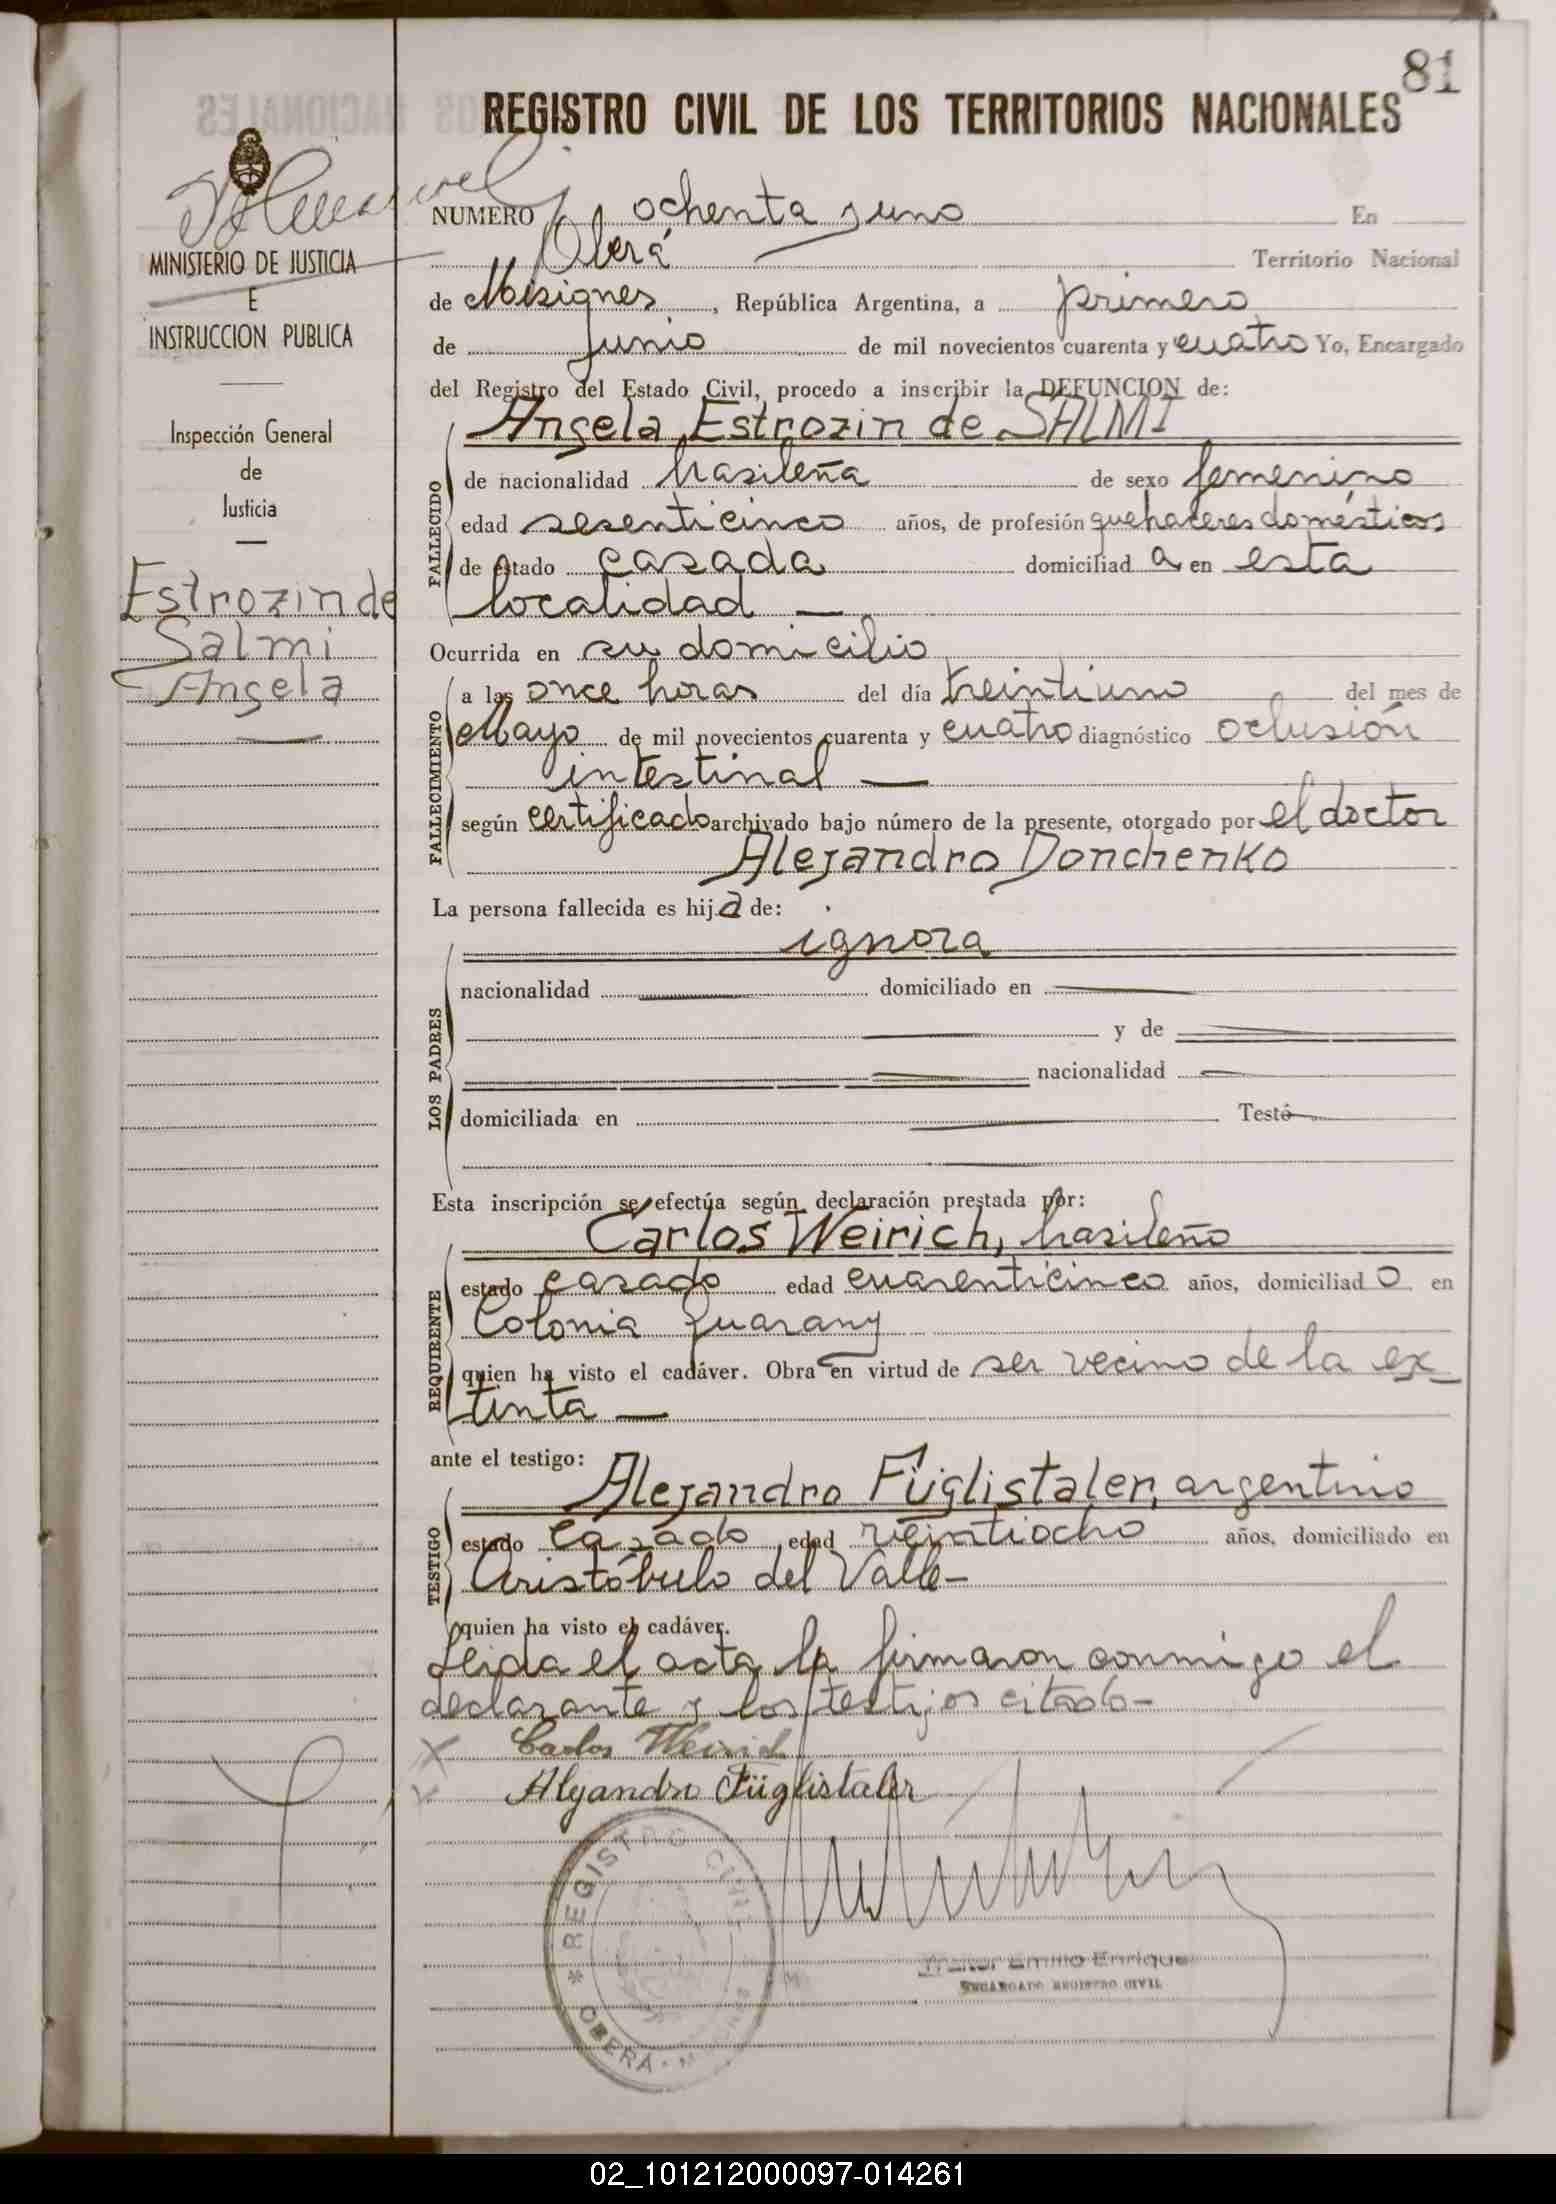 81
REGISTRO CIVIL DE LOS TERRITORIOS NACIONALES
MINISTERIO DE JUSTICIA
E
INSTRUCCION PUBLICA
Inspección General
de
Justicia
Estrozin de
Salmi
Angela
NUMERO ochenta y uno En
Oberá Territorio Nacional
de Misiones, República Argentina, a primero
de Junio de mil novecientos cuarenta y cuatro Yo, Encargado
del Registro del Estado Civil, procedo a inscribir la DEFUNCION de:
Angela Estrozin de SALMI
FALLECIDO
de nacionalidad brasileña de sexo femenino
edad sesenticinco años, de profesión quehaceres domésticos
de estado casada domiciliad a en esta
localidad —
Ocurrida en su domicilio
FALLECIMIENTO
a las once horas del día treintiuno del mes de
Mayo de mil novecientos cuarenta y cuatro diagnóstico oclusión
intestinal —
según certificado archivado bajo número de la presente, otorgado por el doctor
Alejandro Donchenko
La persona fallecida es hija de:
LOS PADRES
ignora
nacionalidad domiciliado en
y de
nacionalidad
domiciliada en Testó
Esta inscripción se efectúa según declaración prestada por:
REQUIRENTE
Carlos Weirich, brasileño
estado casado edad cuarenticinco años, domiciliad o en
Colonia Guarany
quien ha visto el cadáver. Obra en virtud de ser vecino de la ex_
tinta —
ante el testigo:
TESTIGO
Alejandro Füglistaler, argentino
estado casado edad veintiocho años, domiciliado en
Aristóbulo del Valle-
quien ha visto el cadáver.
Leida el acta la firmaron conmigo el
declarante y los testigos citado-
Carlos Weirich
Alejandro Füglistaler
REGISTRO CIVIL
OBERA
Emilio Enrique
ENCARGADO REGISTRO CIVIL
02_101212000097-014261